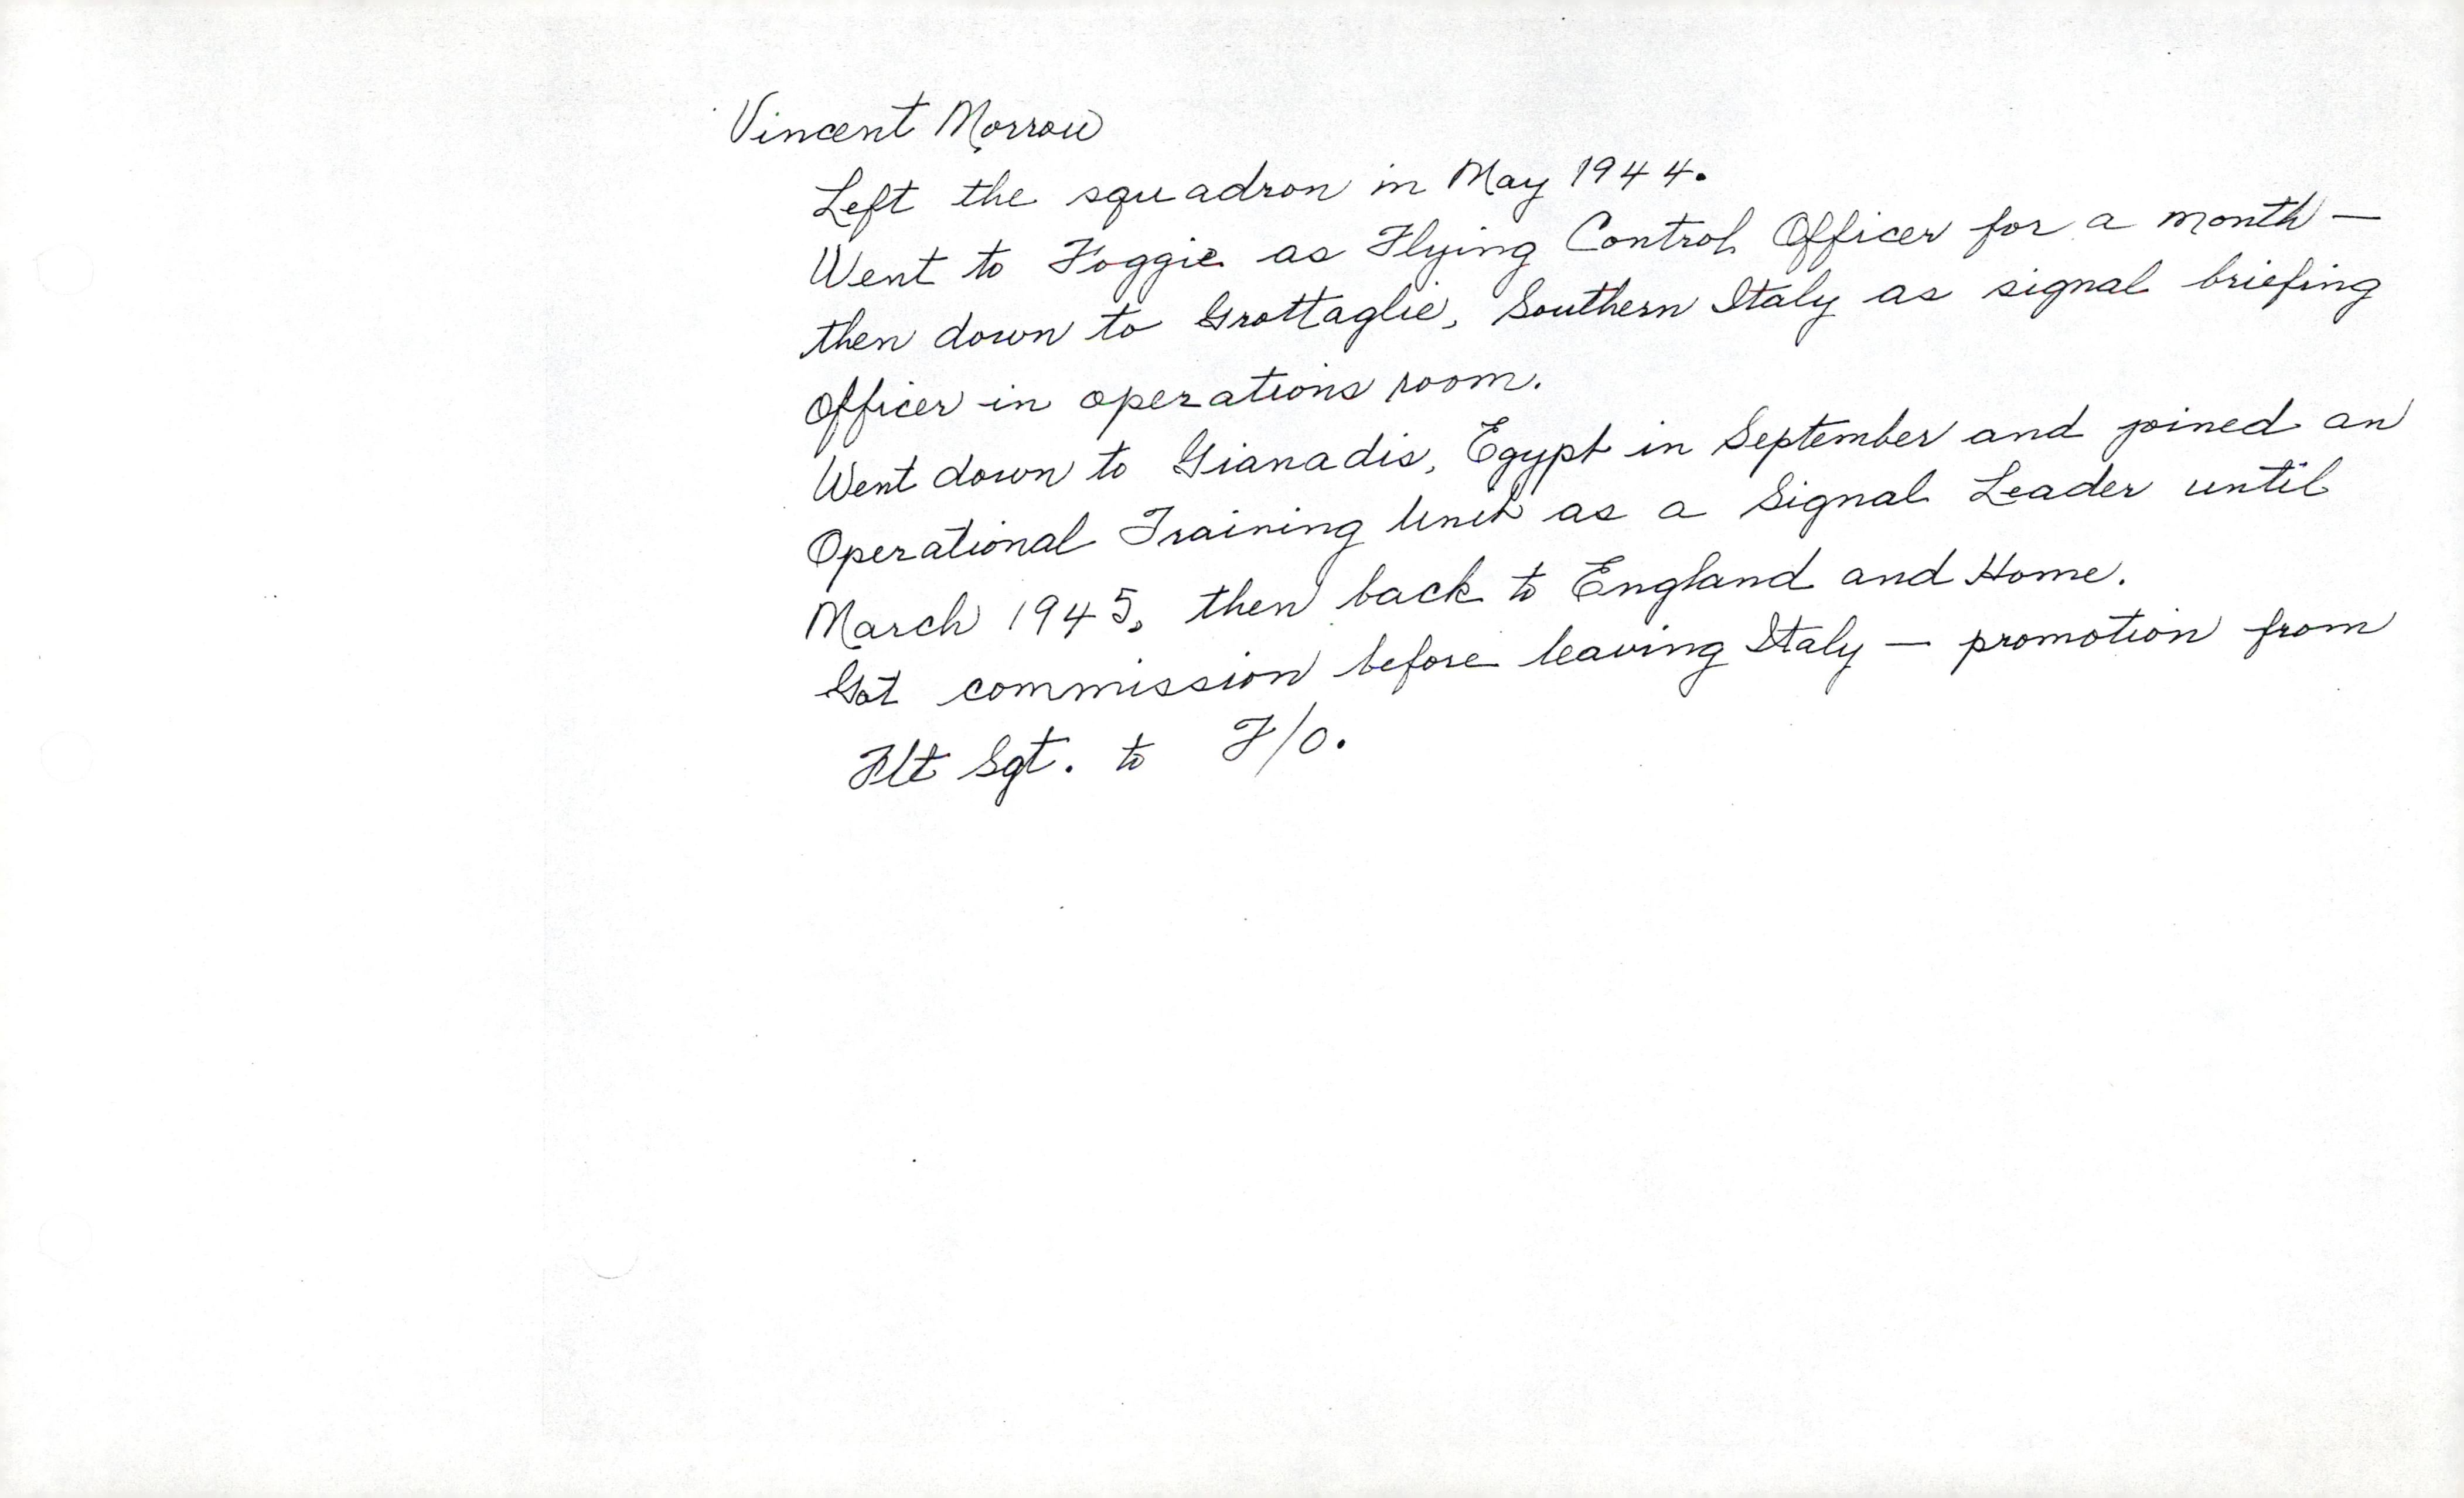 Vincent Morrow
Left the squadron in May 1944.
Went to Foggie as Flying Control Officer for a month —
then down to Grottaglie, Southern Italy as signal briefing
officer in operations room.
Went down to Gianadis, Egypt in September and joined an
Operational Training Unit as a Signal Leader until
March 1945, then back to England and Home.
Got commission before leaving Italy — promotion from
Flt Sgt. to F/O.